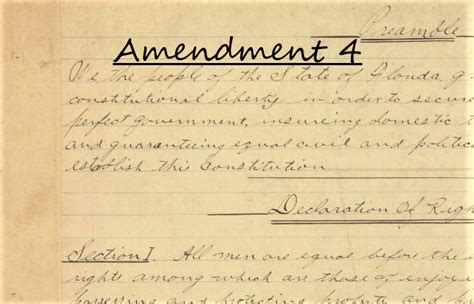 Preamble
Amendment 4
We the people of the State of Florida g
constitutional liberty, in order to secure
perfect government, insureing domestic t
and guaranteeing equal civil and politica
establish this Constitution
Declaration Of Righ
Section 1. All men are equal before the
rights among which are those of enjoy
possessing and protecting property and